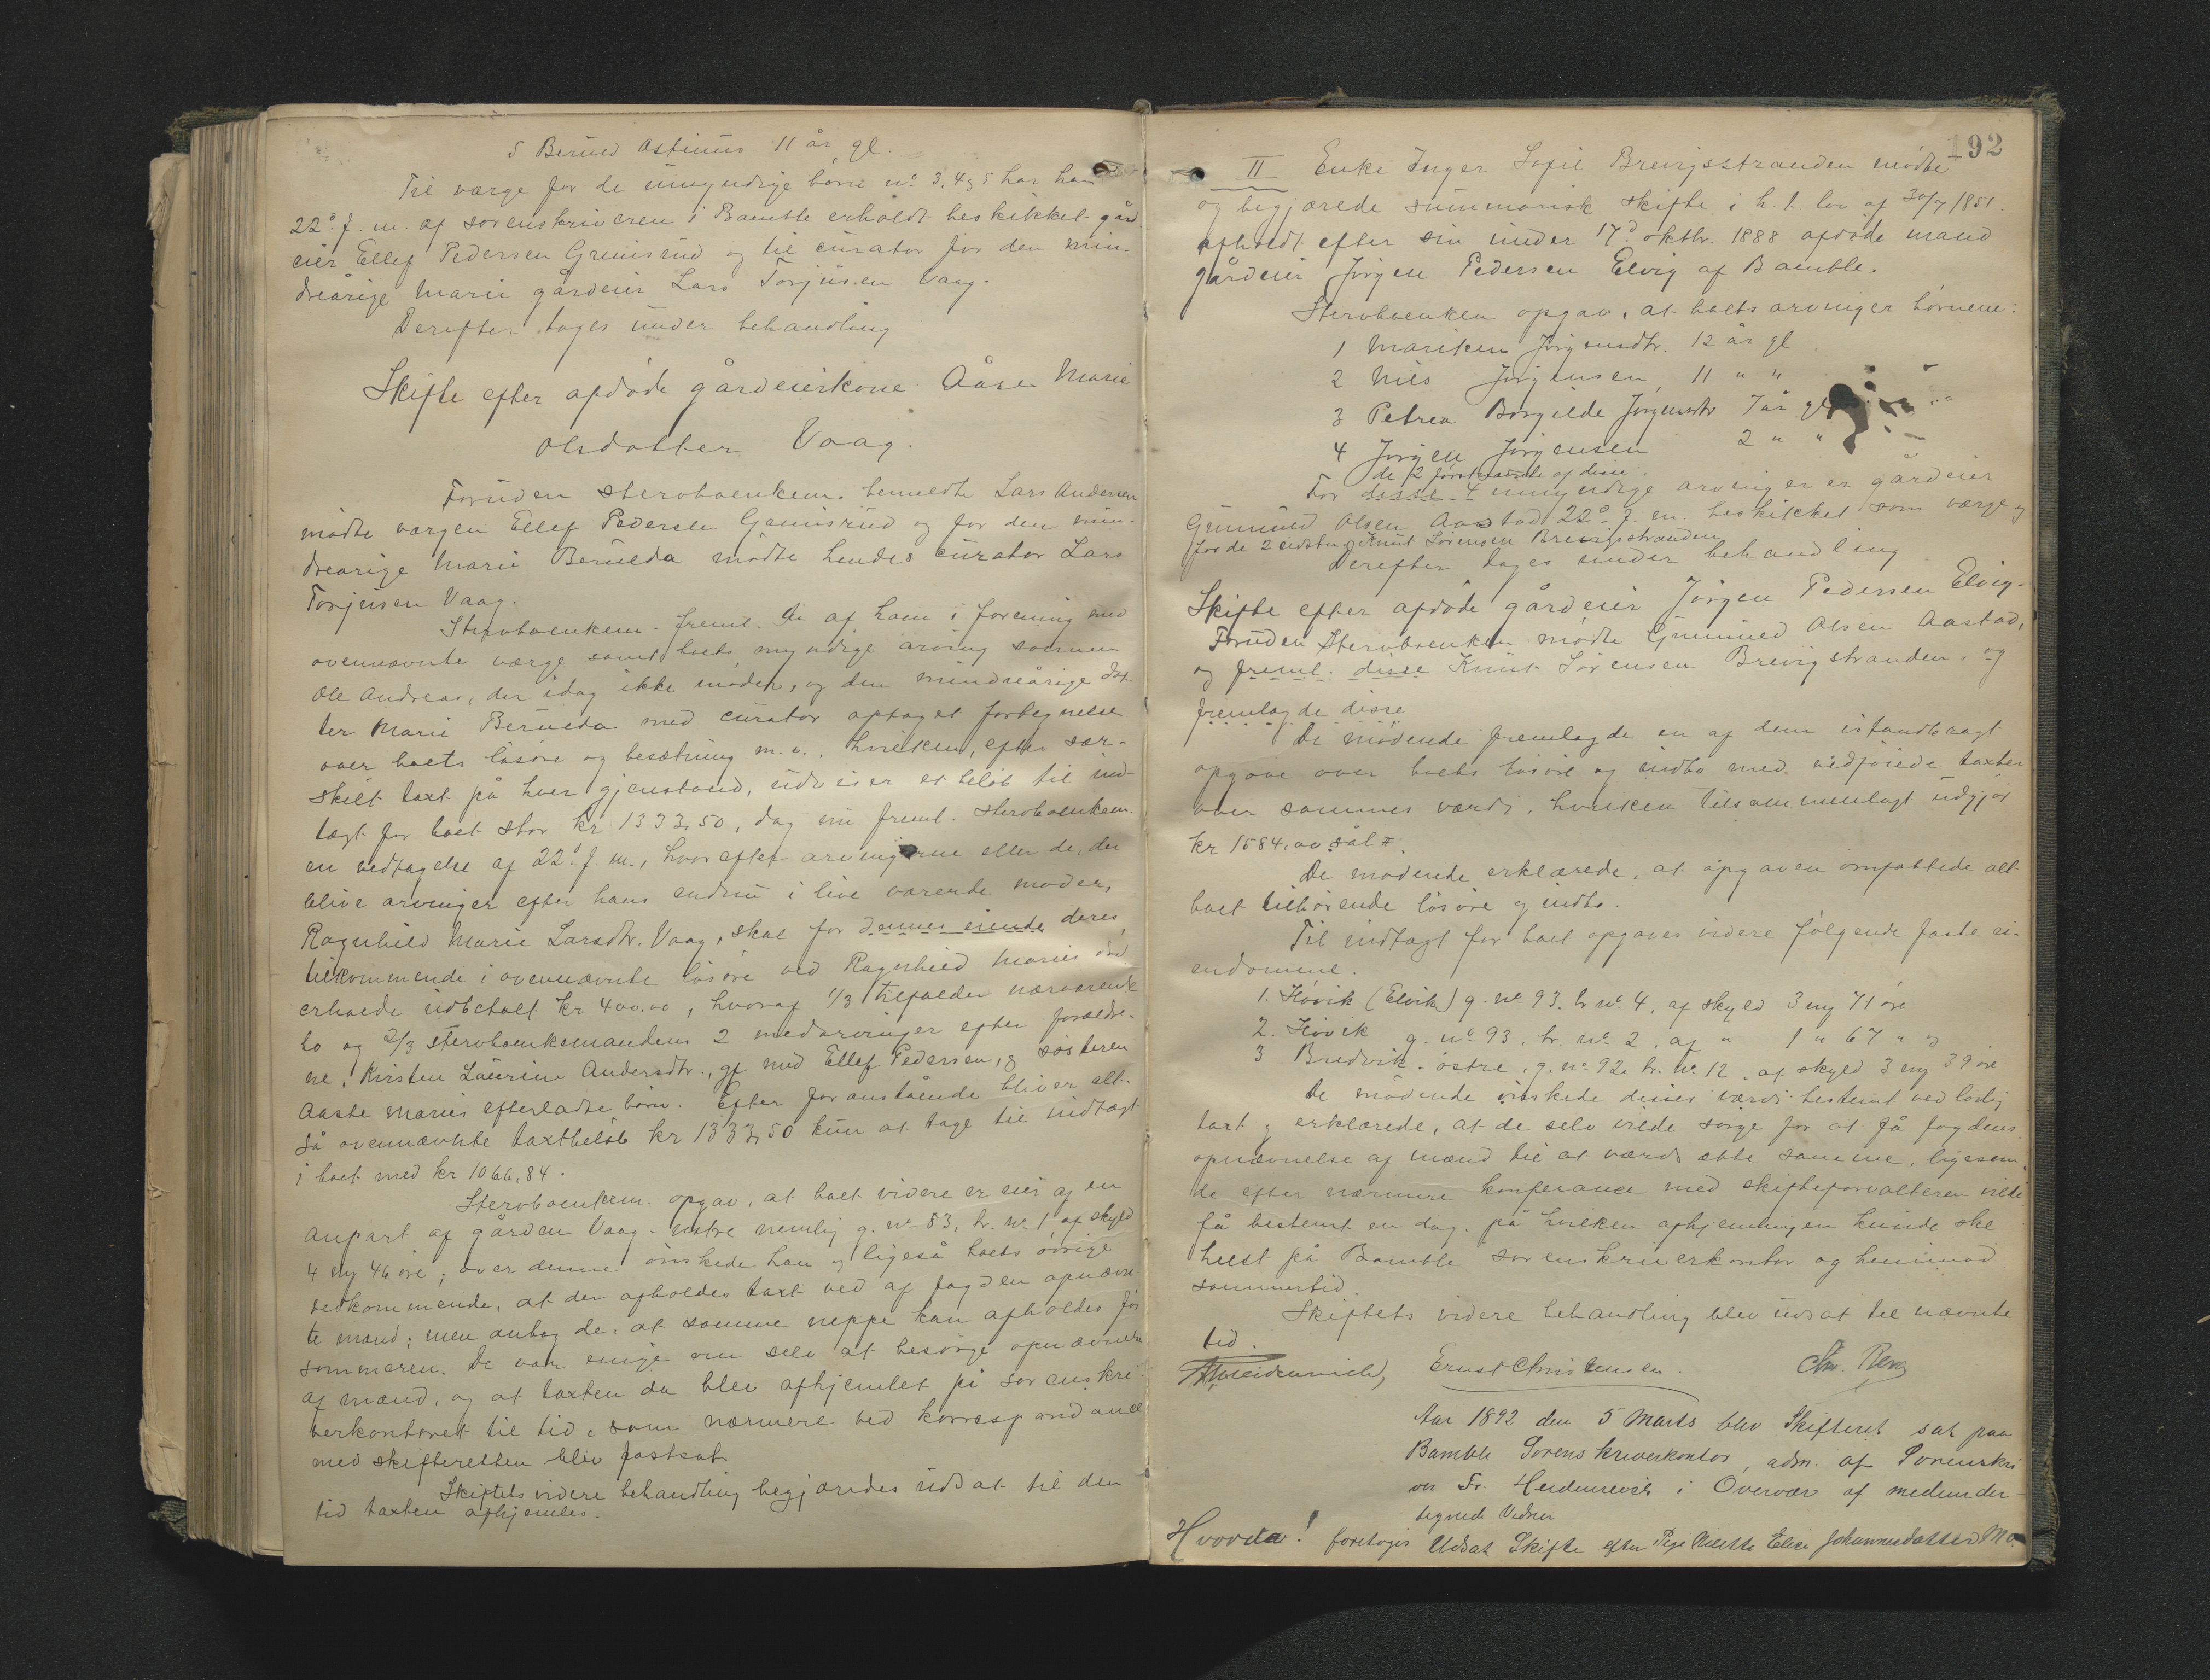 5 Berned Astinus 11 år gl.
Til værge for de umyndige børn no 3, 4 & 5 har han
22de f. m. af sorenskriveren i Bamble erholdt beskikket gård
eier Ellef Pedersen Grimsrud og til curator for den min-
dreårige Marie gårdeier Lars Torjusen Vaag.
Derefter toges under behandling
Skifte efter afdøde gårdeierkone Åase Marie
Olsdatter Vaag.
Foruden stervboenkem. benævnte Lars Andersen
mødte værgen Ellef Pedersen Grimsrud og for den min-
dreårige Marie Berulda mødte hendes curator Lars
Torjusen Vaag.
Stervboenkem. freml. de af ham i forening med
ovennævnte værge samt boets myndige arving sønnen
Ole Andreas, der idag ikke mødte, og den mindreårige dat-
ter Marie Berulda med curator optaget fortegnelse
over boets løsøre og besætning m. v. hvilken, efter sær-
skilt taxt på hver gjenstand, udviser et beløb til ind-
tægt for boet stor kr 1333,50, dog nu freml. stervboenkem.
en vedtagelse af 22de f. m., hvorefter arvingerne eller de, der
blive arvinger efter hans endnu i live værende moder,
Ragnhild Marie Larsdtr. Vaag, skal for dennes eiende deres
tilkommende i ovennævnte løsøre ved Ragnhild Maries død
erholde udbetalt kr 400.00, hvoraf 1/3 tilfalder nærværende
bo og 2/3 stervboenkemandens 2 medarvinger efter forældre-
ne, Kirsten Laurine Andersdtr., gf med Ellef Pedersen, & søsteren
Aaste Maries efterladte børn. Efter foranstående bliver alt-
så ovennævnte taxtbeløb kr 1333,50 kun at tage til indtægt
i boet med kr 1066,84.
Stervboenkem. opgav, at boet videre er eier af en
anpart af gården Vaag - vestre nemlig g. no 53, br. no 1 af skyld
4 my 46 øre; over denne ønskede han og ligeså boets øvrige
vedkommende, at der afholdes taxt ved af fogden opnævn-
te mænd; men antog de, at samme neppe kan afholdes før
sommeren. De var enige om selv at besørge opnævnelse
af mænd, og at taxten da blev afhjemlet på sorenskri-
verkontoret til tid, som nærmere ved korrespondance
med skifteretten blev fastsat.
Skiftets videre behandling begjæredes udsat til den
tid taxten afhjemles.
192
II Enke Inger Sofie Brevigsstranden mødte
og begjærede summarisk skifte i h. t. lov af 30/7 1851
afholdt efter sin under 17d oktbr. 1888 afdøde mand
gårdeier Jørgen Pedersen Elvig af Bamble.
Stervboenken opgav, at boets arvinger børnene:
1 Mariken Jørgensdtr. 12 år gl
2 Nils Jørgensen, 11 " "
3 Petrea Borgilde Jørgensdtr 7 år gl
4 Jørgen Jørgensen 2 " "
de 2 førstnævnte af disse
For disse 4 umyndige arvinger er gårdeier
Gunmund Olsen Aastad 22de f. m. beskikket som værge og
for de 2 sidste Knut Sørensen Brevigsstranden
Derefter toges under behandling
Skifte efter afdøde gårdeier Jørgen Pedersen Elvig.
Foruden Stervboenken mødte Gunmund Olsen Aastad,
og freml. disse Knut Sørensen Brevigstranden, og
fremlagde disse
De mødende fremlagde en af dem istandbragt
opgave over boets løsøre og indbo med vedføiede taxter
over sammes værdi, hvilken tilsammenlagt udgjør
kr 1584,00 sål #.
De mødende erklærede, at opgaven omfattede alt
boet tilhørende løsøre og indbo.
Til indtægt for boet opgaves videre følgende faste ei-
endomme.
1. Høvik (Elvik) g. no 93, br no 4, af skyld 3 my 71 øre
2. Høvik g. no 93, br. no 2, af " 1 " 67 " "
3 Bredvik - østre, g. no 92 br. no 12, af skyld 3 my 39 øre
De mødende ønskede disses værdi bestemt ved lovlig
taxt og erklærede, at de selv vilde sørge for at få fogdens
opnævnelse af mænd til at værdsætte samme, ligesom
de efter nærmere konferance med skifteforvalteren vilde
få bestemt en dag, på hvilken afhjemlingen kunde ske
helst på Bamble sorenskriverkontor og henimod
sommertid.
Skiftets videre behandling blev udsat til nævnte
tid.
Fr Heidenreich, Ernst Christensen. Chr. Berg
Aar 1892 den 5 Marts blev Skifteret sat paa
Bamble Sorenskriverkontor, adm. af Sorenskri
ver Fr. Heidenreich i Overvær af medunder-
tegnede Vidner
Hvorda! foretoges Udsat Skifte efter Pige Mette Elise Johannesdatter Mo